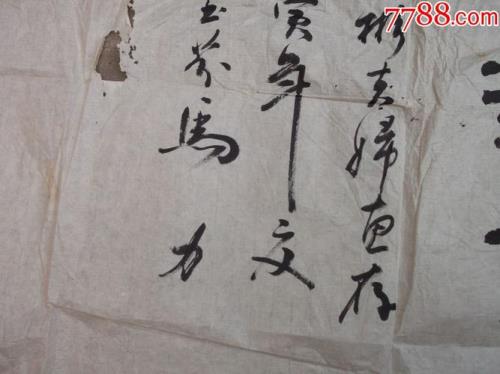 7788.com
彬夫婦惠存
寅年文
玉芬馬力